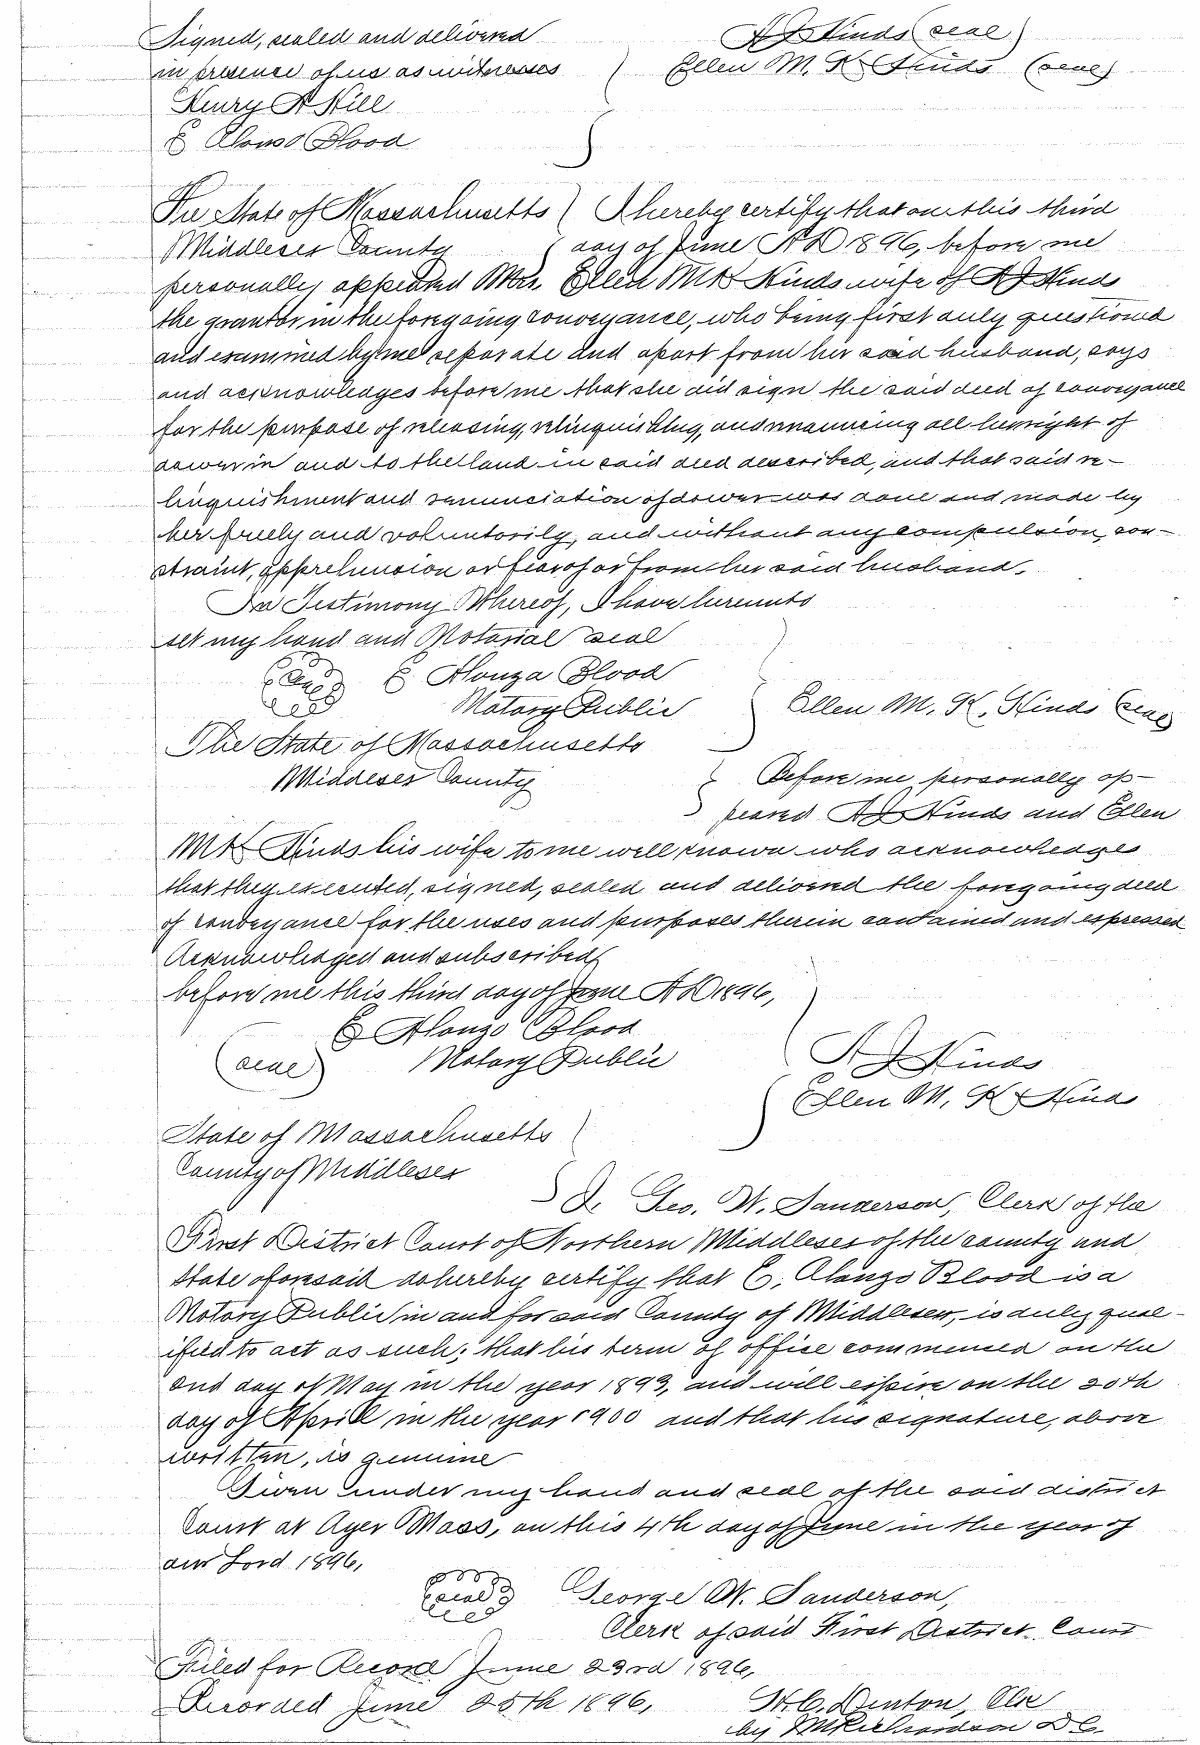 Signed, sealed and delivered
A J Hinds (seal)
in presence of us as witnesses
Ellen M. K. Hinds (seal)
Henry A Hill
E Alonso Blood
The State of Massachusetts
I hereby certify that on this third
Middlesex County
day of June A D 1896, before me
personally appeared Mrs. Ellen M K Hinds wife of A J Hinds
the grantor in the foregoing conveyance, who being first duly questioned
and examined by me separate and apart from her said husband, says
and acknowledges before me that she did sign the said deed of conveyance
for the purpose of releasing, relinquishing, and renouncing all her right of
dower in and to the land in said deed described, and that said re-
linquishment and renunciation of dower was done and made by
her freely and voluntarily, and without any compulsion, con-
straint, apprehension or fear of or from her said husband.
In Testimony Whereof, I have hereunto
set my hand and Notarial seal
seal
E Alonza Blood
Notary Public
Ellen M. K. Hinds (seal)
The State of Massachusetts
Middlesex County
Before me personally ap-
peared A J Hinds and Ellen
M K Hinds his wife to me well known who acknowledges
that they executed, signed, sealed and delivered the foregoing deed
of conveyance for the uses and purposes therein contained and expressed
Acknowledged and subscribed
before me this third day of June A D 1896,
E Alonzo Blood
(seal)
Notary Public
A J Hinds
Ellen M. K Hinds
State of Massachusetts
County of Middlesex
I, Geo. W. Sanderson, Clerk of the
First District Court of Northern Middlesex of the county and
state aforesaid do hereby certify that E. Alonzo Blood is a
Notary Public in and for said County of Middlesex, is duly qual-
ified to act as such; that his term of office commenced on the
2nd day of May in the year 1893, and will expire on the 20th
day of April in the year 1900 and that his signature, above
written, is genuine
Given under my hand and seal of the said district
Court at Ayer Mass, on this 4th day of June in the year of
our Lord 1896,
seal
George W. Sanderson,
Clerk of said First District Court
Filed for Record June 23rd 1896,
Recorded June 25th 1896,
H. C. Denton, Clk
by J M Richardson D C.